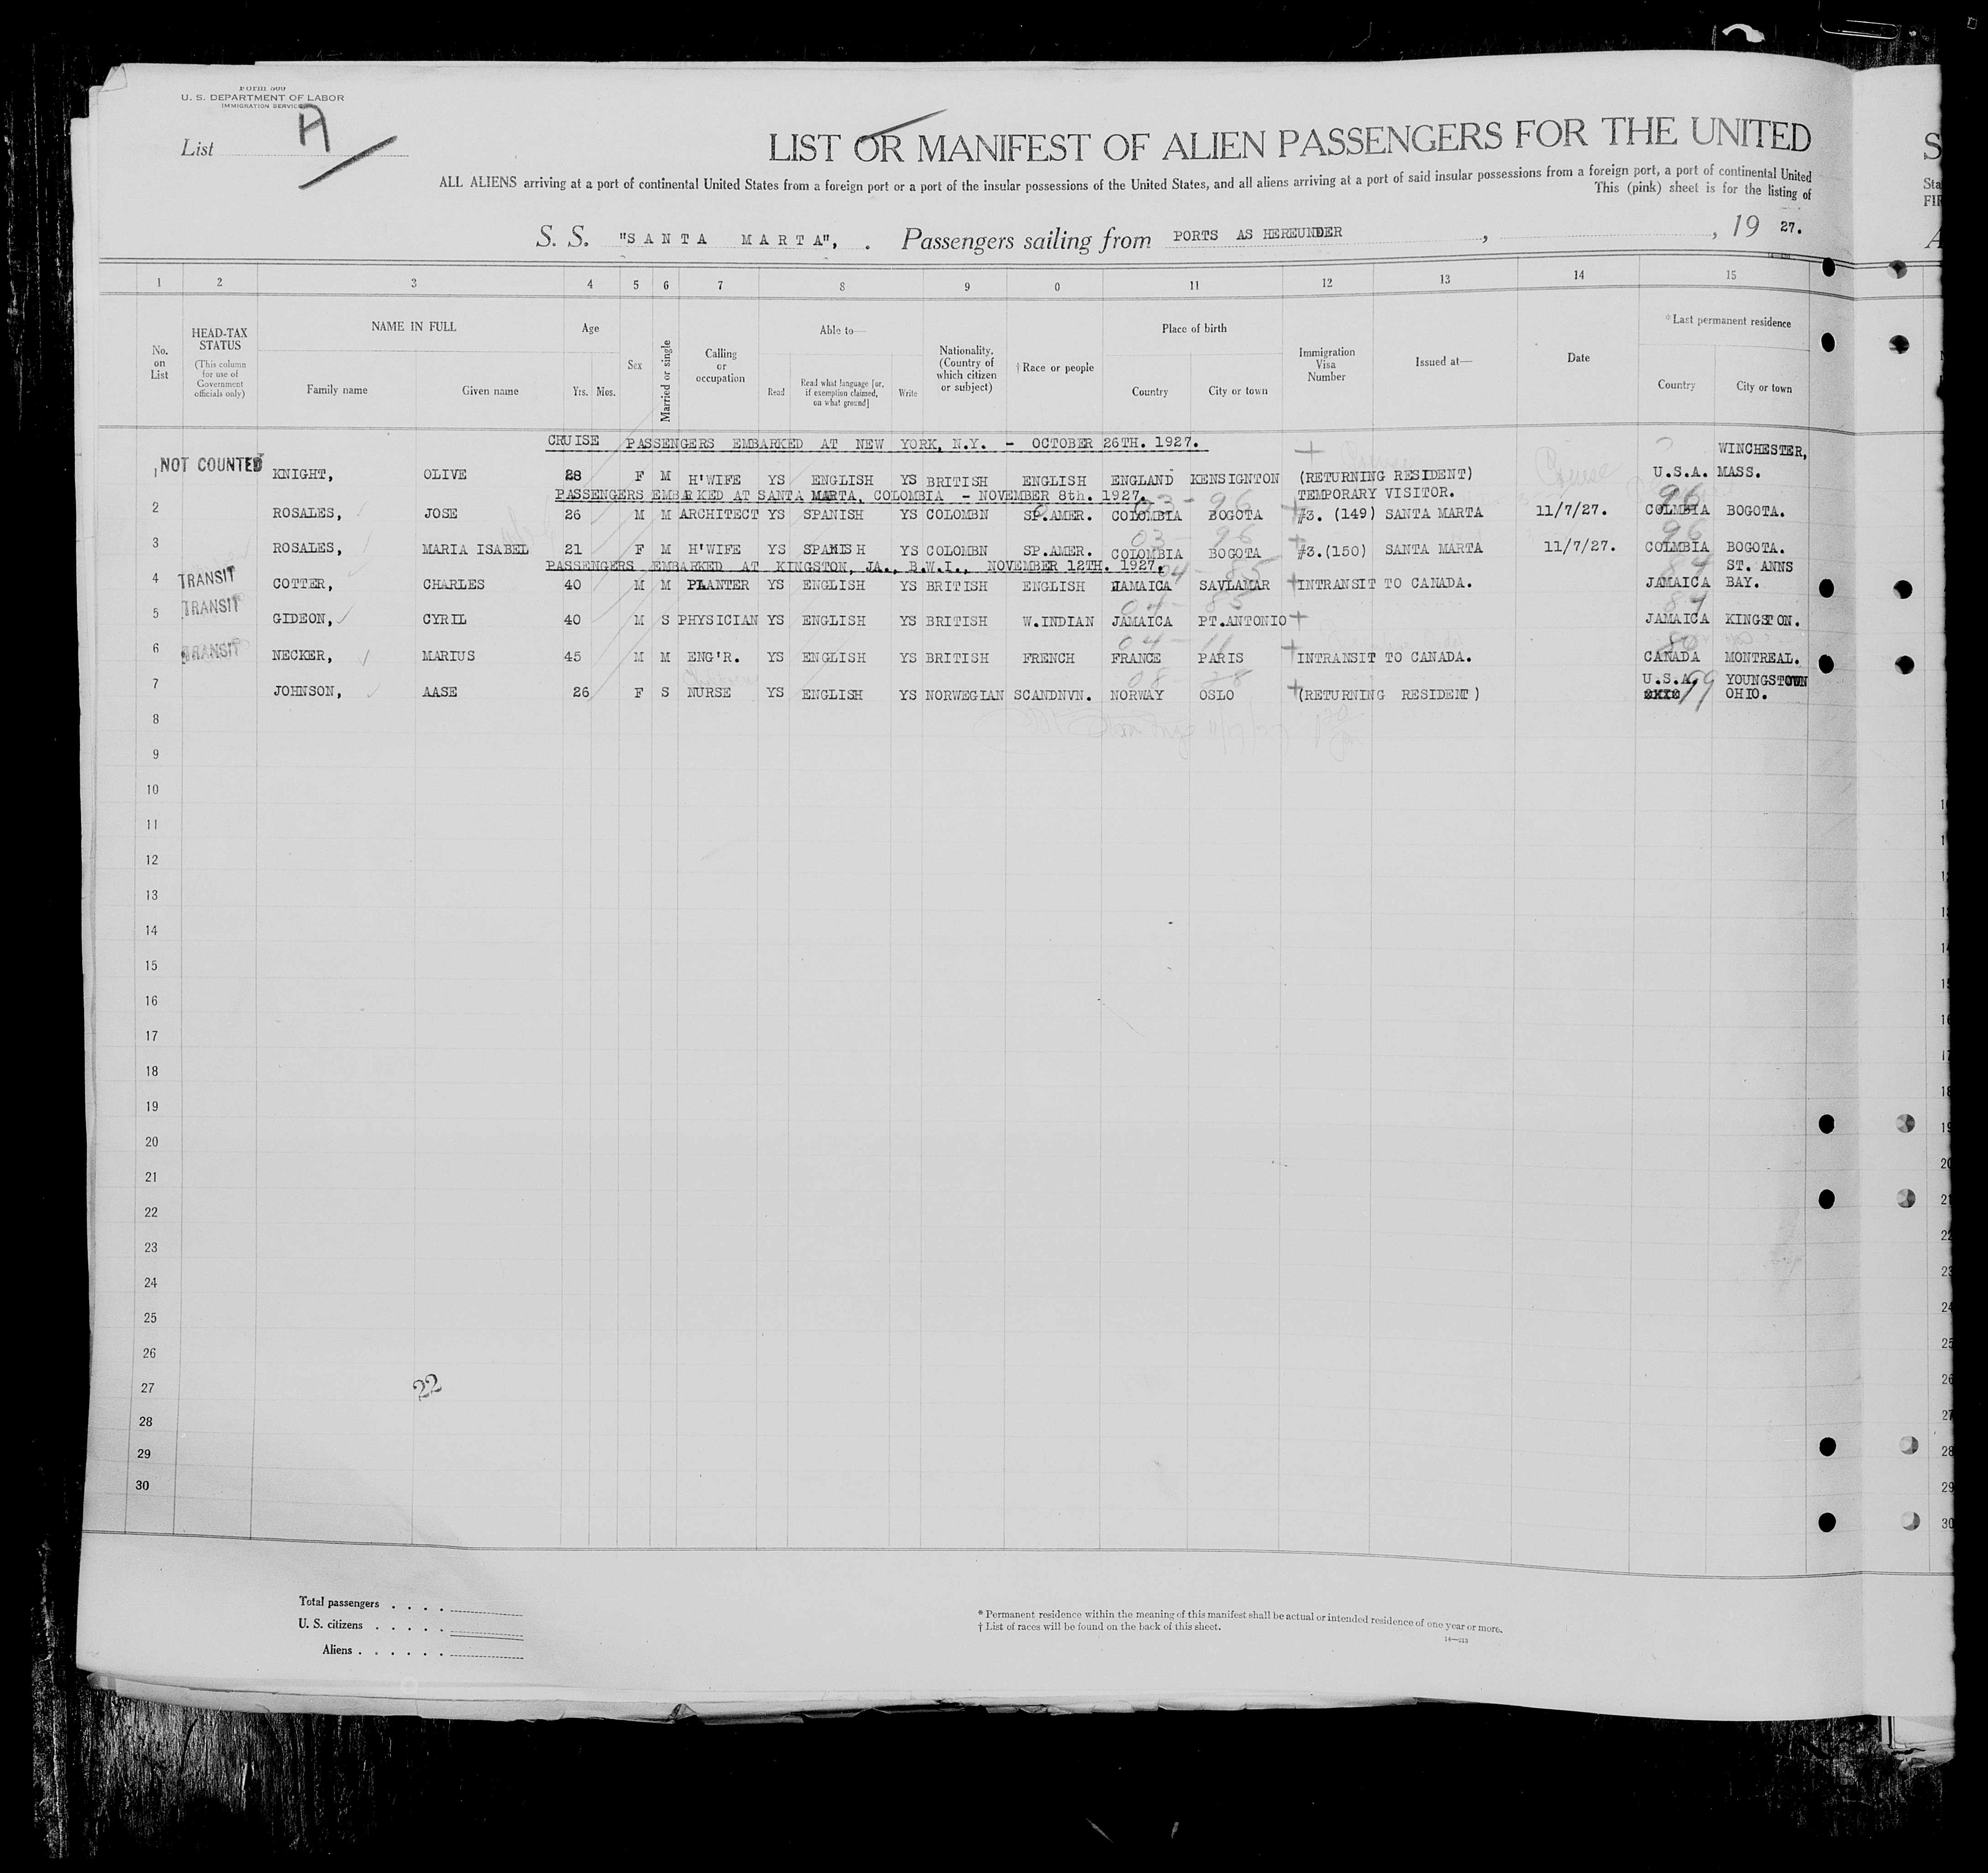 Form 500
U. S. DEPARTMENT OF LABOR
IMMIGRATION SERVICE
List A
LIST OR MANIFEST OF ALIEN PASSENGERS FOR THE UNITED
ALL ALIENS arriving at a port of continental United States from a foreign port or a port of the insular possessions of the United States, and all aliens arriving at a port of said insular possessions from a foreign port, a port of continental United
This (pink) sheet is for the listing of
S. S. "SANTA MARTA", . Passengers sailing from PORTS AS HEREUNDER , , 19 27.
1 2 3 4 5 6 7 8 9 0 11 12 13 14 15
No. on List
HEAD-TAX STATUS (This column for use of Government officials only)
NAME IN FULL
Family name Given name
Age
Yrs. Mos.
Sex
Married or single
Calling or occupation
Able to—
Read
Read what language [or, if exemption claimed, on what ground]
Write
Nationality. (Country of which citizen or subject)
† Race or people
Place of birth
Country City or town
Immigration Visa Number
Issued at—
Date
* Last permanent residence
Country City or town
CRUISE PASSENGERS EMBARKED AT NEW YORK, N.Y. - OCTOBER 26TH. 1927.
WINCHESTER,
1 NOT COUNTED KNIGHT, OLIVE 28 F M H'WIFE YS ENGLISH YS BRITISH ENGLISH ENGLAND KENSIGNTON (RETURNING RESIDENT) Cruise U.S.A. MASS.
PASSENGERS EMBARKED AT SANTA MARTA, COLOMBIA - NOVEMBER 8th. 1927. TEMPORARY VISITOR.
03 - 96 96
2 ROSALES, JOSE 26 M M ARCHITECT YS SPANISH YS COLOMBN SP.AMER. COLOMBIA BOGOTA #3. (149) SANTA MARTA 11/7/27. COLMBIA BOGOTA.
03 - 96 96
3 ROSALES, MARIA ISABEL 21 F M H'WIFE YS SPANISH YS COLOMBN SP.AMER. COLOMBIA BOGOTA #3.(150) SANTA MARTA 11/7/27. COLMBIA BOGOTA.
PASSENGERS EMBARKED AT KINGSTON, JA., B.W.I., NOVEMBER 12TH. 1927. ST. ANNS
04 - 85 84
4 TRANSIT COTTER, CHARLES 40 M M PLANTER YS ENGLISH YS BRITISH ENGLISH JAMAICA SAVLAMAR INTRANSIT TO CANADA. JAMAICA BAY.
04 - 85 84
5 TRANSIT GIDEON, CYRIL 40 M S PHYSICIAN YS ENGLISH YS BRITISH W.INDIAN JAMAICA PT.ANTONIO JAMAICA KINGSTON.
04 - 11 80
6 TRANSIT NECKER, MARIUS 45 M M ENG'R. YS ENGLISH YS BRITISH FRENCH FRANCE PARIS INTRANSIT TO CANADA. CANADA MONTREAL.
08 - 28 U.S.A. YOUNGSTOWN
7 JOHNSON, AASE 26 F S NURSE YS ENGLISH YS NORWEGIAN SCANDNVN. NORWAY OSLO (RETURNING RESIDENT) 99 OHIO.
8
9
10
11
12
13
14
15
16
17
18
19
20
21
22
23
24
25
26
27 22
28
29
30
Total passengers . . . .
U. S. citizens . . . . .
Aliens . . . . . .
* Permanent residence within the meaning of this manifest shall be actual or intended residence of one year or more.
† List of races will be found on the back of this sheet.
14—213